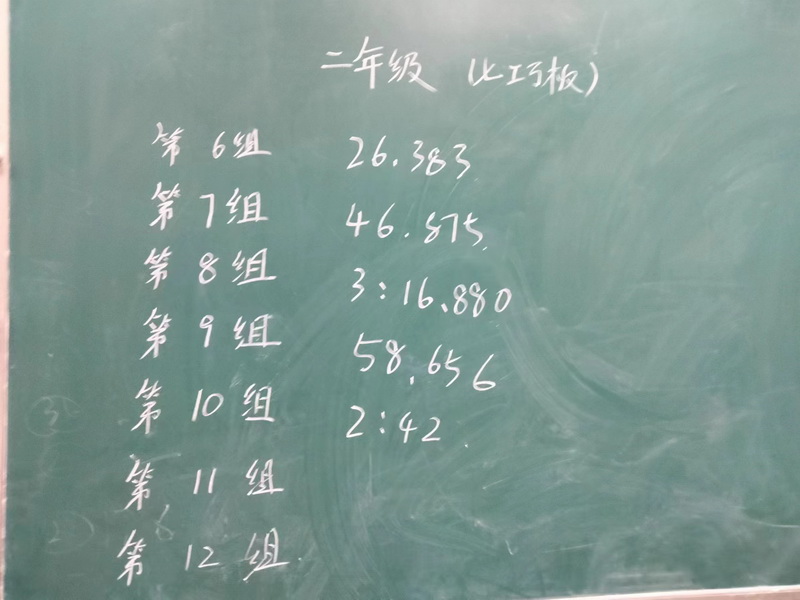 二年级（七巧板）
第6组 26.383
第7组 46.875
第8组 3:16.880
第9组 58.656
第10组 2:42
第11组
第12组